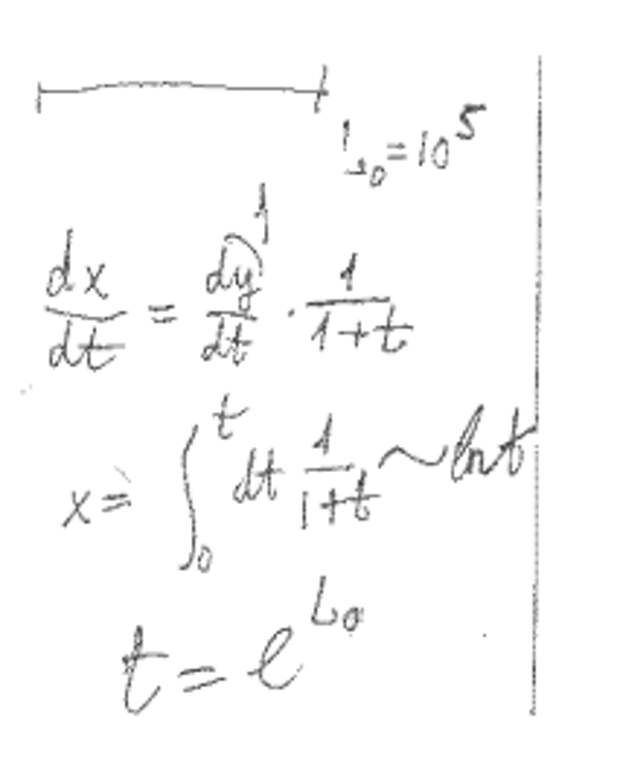 L₀ = 10⁵
dx/dt = dy/dt · 1/(1+t)
x = ∫₀ᵗ dt 1/(1+t) ~ ln t
t = e^L₀